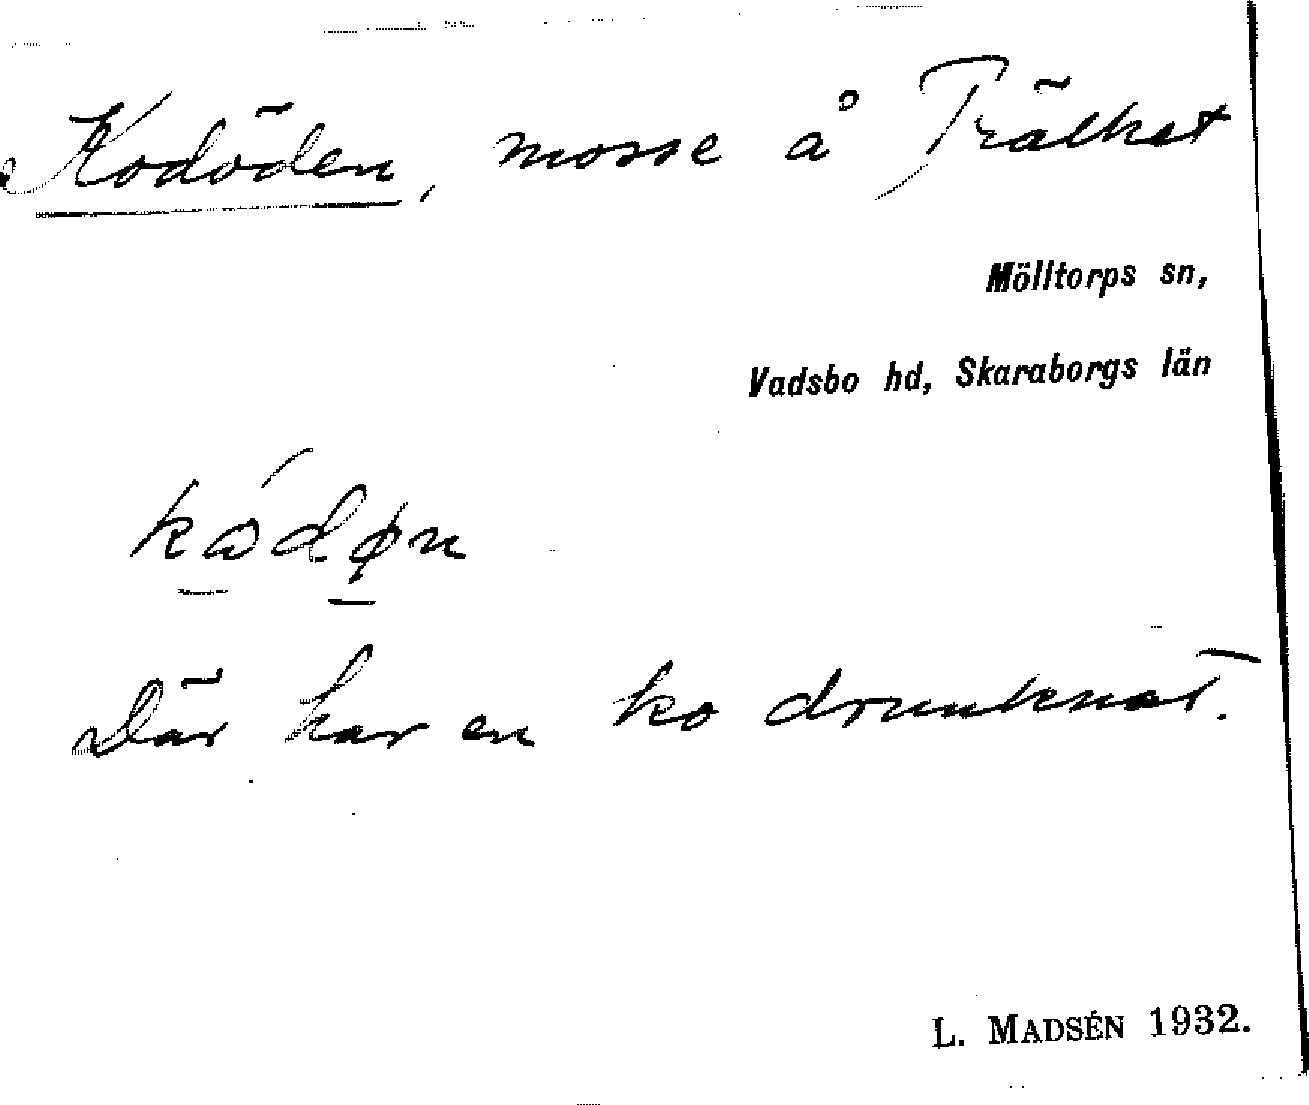 Kodöden, mosse å Trälhet
Mölltorps sn,
Vadsbo hd, Skaraborgs län
Där har en ko drunknat.
L. MADSÉN 1932.